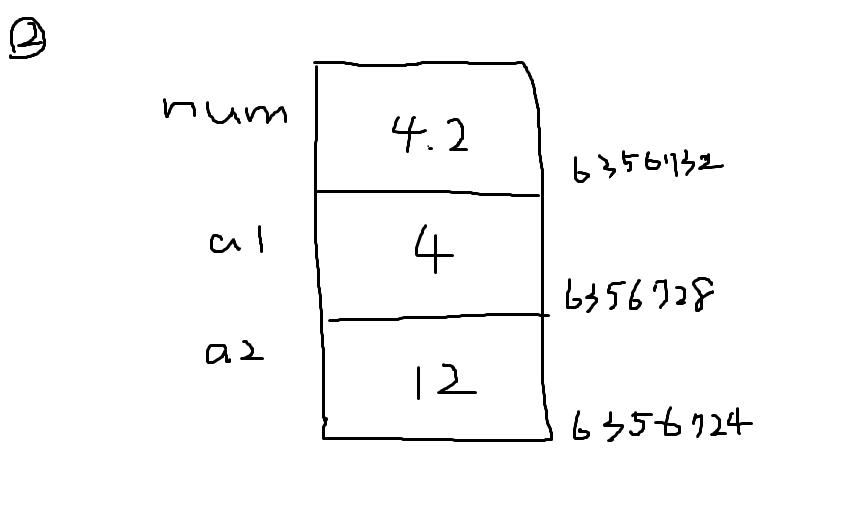 ②
num 4.2 6356732
a1 4 6356728
a2 12 6356724